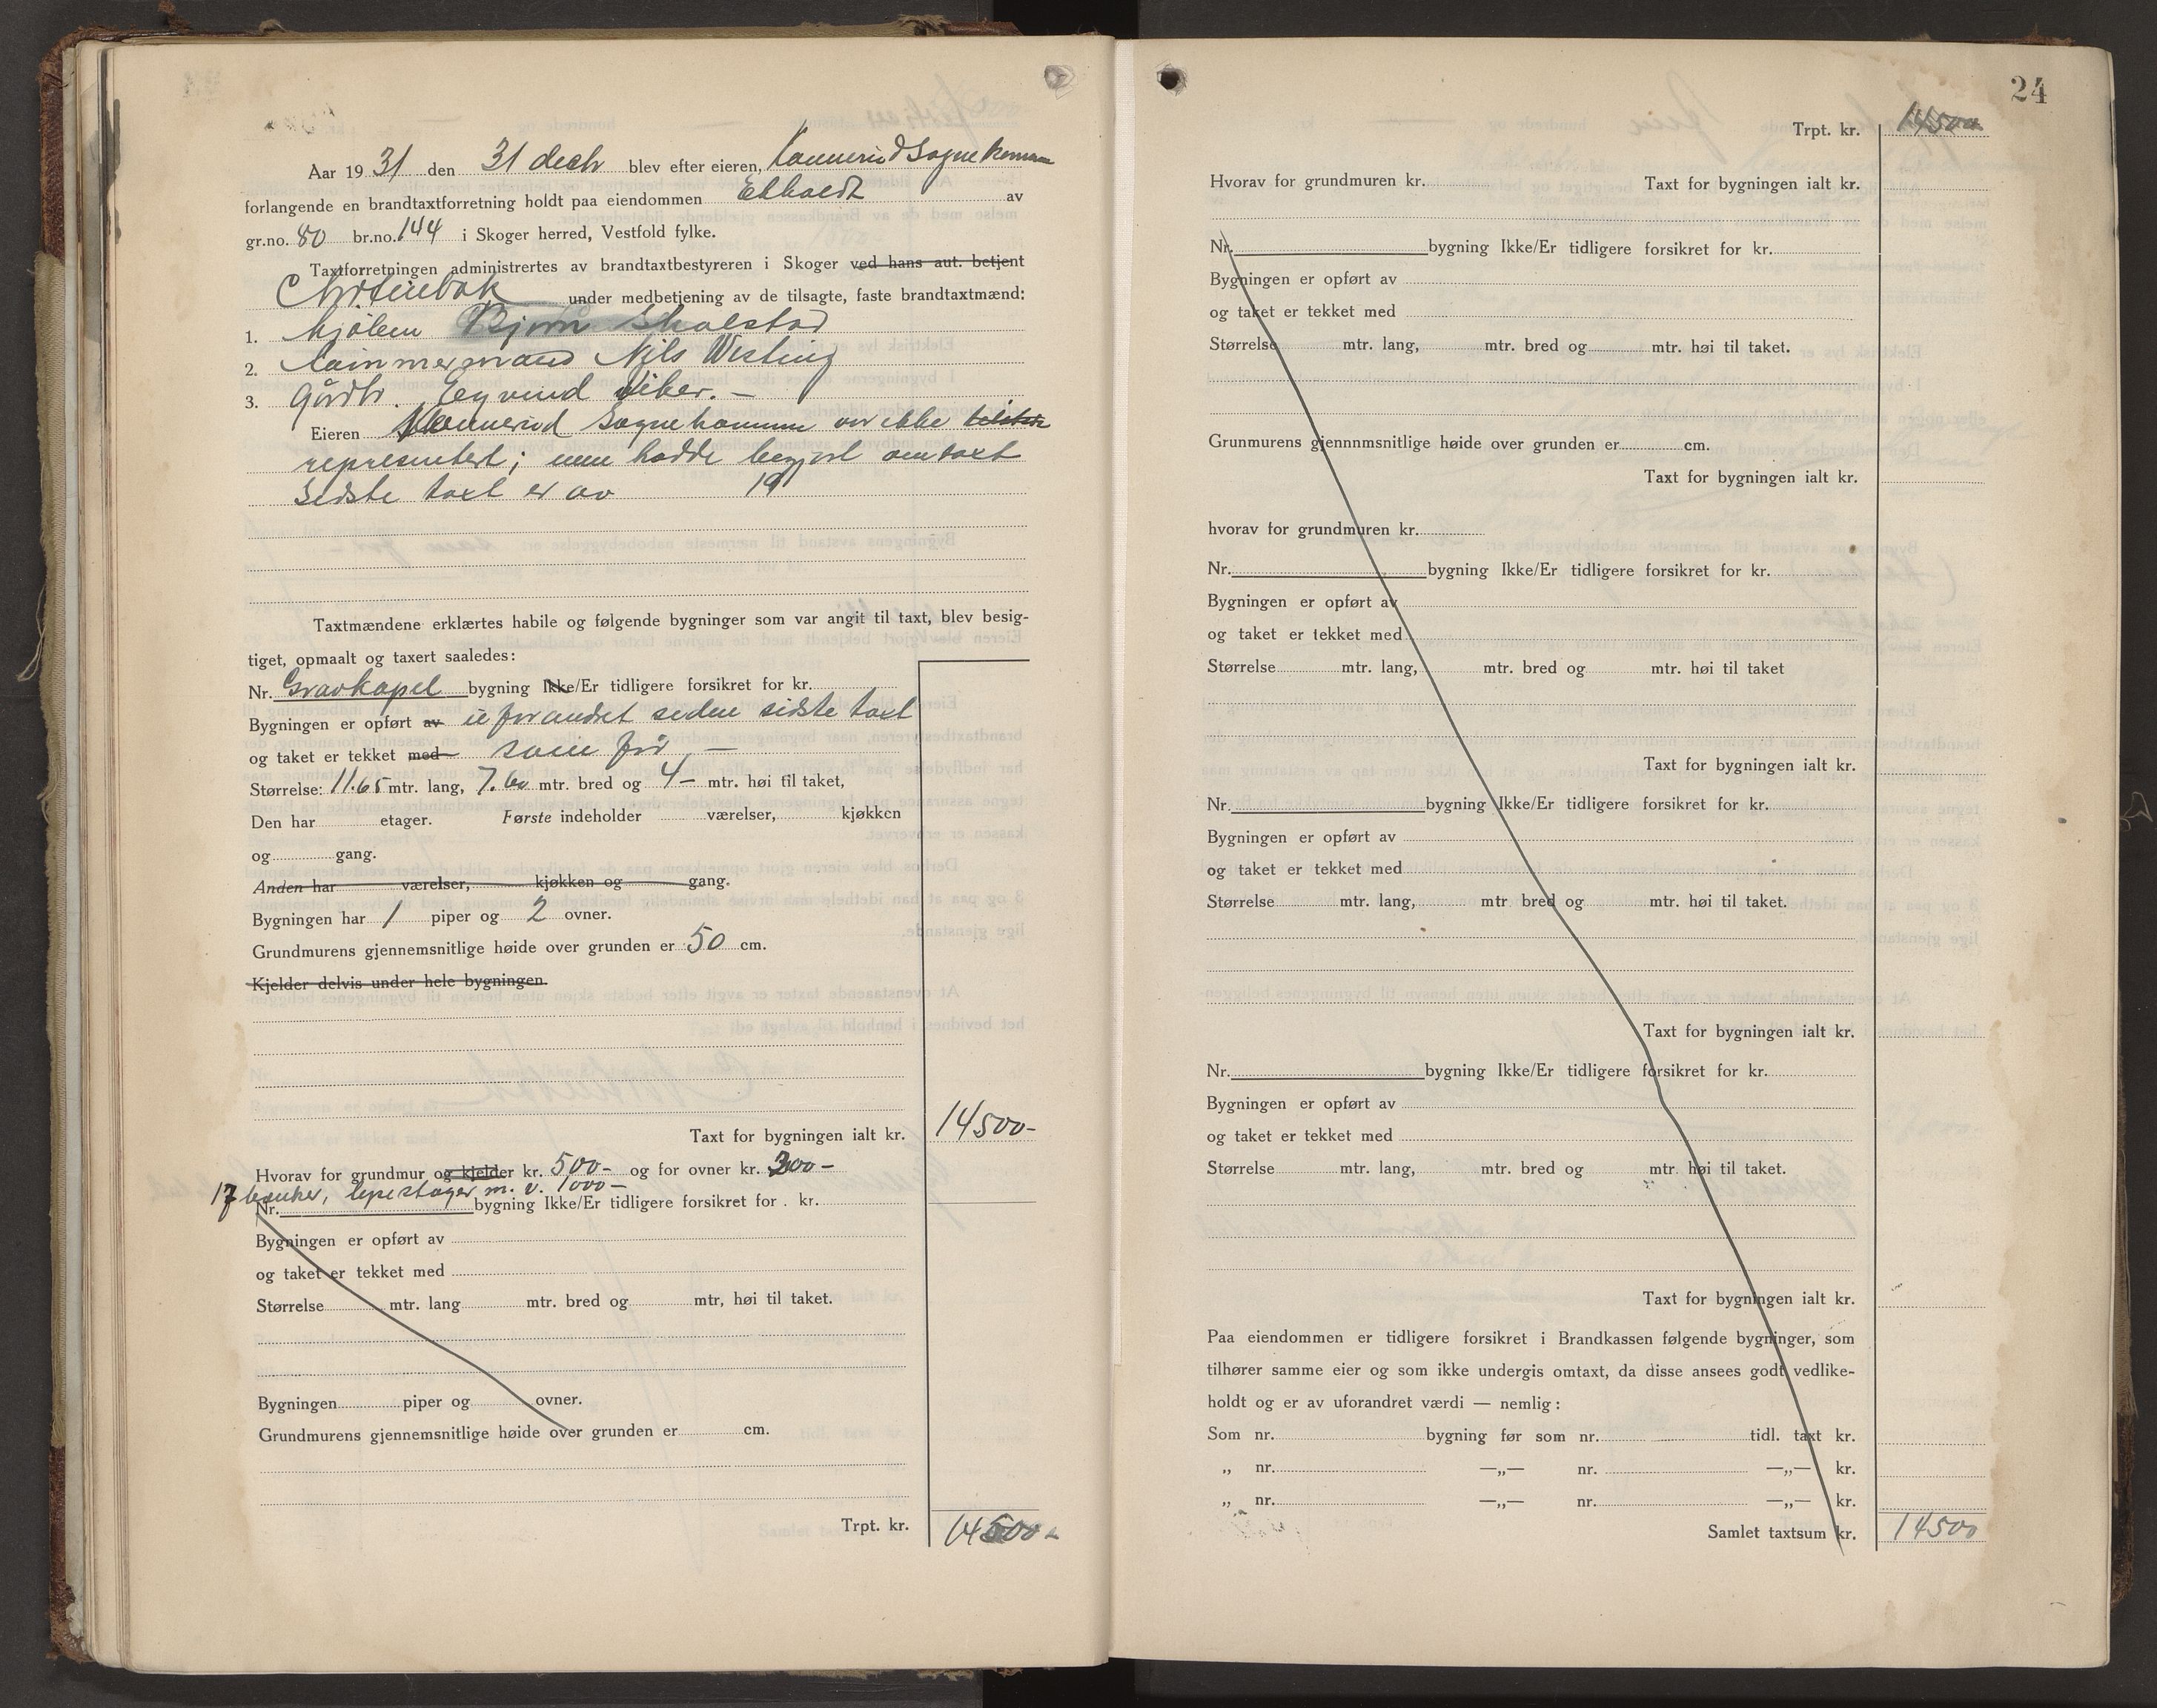 Aar 1931 den 31 decbr blev efter eieren, Konnerud Sogns Kommun
forlangende en brandtaxtforretning holdt paa eiendommen Ekholdt av
gr.no. 80 br.no. 144 i Skoger herred, Vestfold fylke.
Taxtforretningen administrertes av brandtaxtbestyreren i Skoger ved hans aut. betjent
under medbetjening av de tilsagte, faste brandtaxtmænd:
1. Bjørn Skalstad
2. Nils Westing
3. Gårdbr. Eyvind
Eieren Konnerud Sognekommun var ikke
representert; men hadde begjært omtaxt
Sidste taxt er av 19
Taxtmændene erklærtes habile og følgende bygninger som var angit til taxt, blev besig-
tiget, opmaalt og taxert saaledes:
Nr. Gravkapel bygning Ikke/Er tidligere forsikret for kr.
Bygningen er opført av uforandret siden sidste taxt
og taket er tekket med som før —
Størrelse: 11.65 mtr. lang, 7.60 mtr. bred og 4— mtr. høi til taket,
Den har etager. Første indeholder værelser, kjøkken
og gang.
Anden har værelser, kjøkken og gang.
Bygningen har 1 piper og 2 ovner.
Grundmurens gjennemsnitlige høide over grunden er 50 cm.
Kjelder delvis under hele bygningen.
Taxt for bygningen ialt kr. 14500-
Hvorav for grundmur og kjelder kr. 500- og for ovner kr. 300-
17 benker, lysestager m. v. 1000-
Nr. bygning Ikke/Er tidligere forsikret for . kr.
Bygningen er opført av
og taket er tekket med
Størrelse mtr. lang mtr. bred og mtr, høi til taket.
Bygningen piper og ovner.
Grundmurens gjennemsnitlige høide over grunden er cm.
Trpt. kr. 14500-
24
Trpt. kr. 14500
Hvorav for grundmuren kr. Taxt for bygningen ialt kr.
Nr. bygning Ikke/Er tidligere forsikret for kr.
Bygningen er opført av
og taket er tekket med
Størrelse mtr. lang, mtr. bred og mtr. høi til taket.
Grunmurens gjennnmsnitlige høide over grunden er cm.
Taxt for bygningen ialt kr.
hvorav for grundmuren kr.
Nr. bygning Ikke/Er tidligere forsikret for kr.
Bygningen er opført av
og taket er tekket med
Størrelse mtr. lang, mtr. bred og mtr. høi til taket
Taxt for bygningen ialt kr.
Nr. bygning Ikke/Er tidligere forsikret for kr.
Bygningen er opført av
og taket er tekket med
Størrelse mtr. lang, mtr bred og mtr. høi til taket.
Taxt for bygningen ialt kr.
Nr. bygning Ikke/Er tidligere forsikret for kr.
Bygningen er opført av
og taket er tekket med
Størrelse mtr. lang, mtr. bred og mtr. høi til taket.
Taxt for bygningen ialt kr.
Paa eiendommen er tidligere forsikret i Brandkassen følgende bygninger, som
tilhører samme eier og som ikke undergis omtaxt, da disse ansees godt vedlike-
holdt og er av uforandret værdi — nemlig:
Som nr. bygning før som nr. tidl. taxt kr.
„ nr. —„— nr. —„— kr.
„ nr. —„— nr. —„— kr.
Samlet taxtsum kr. 14500